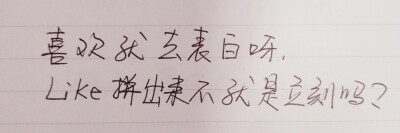 喜欢就去表白呀,
Like拼出来不就是立刻吗?